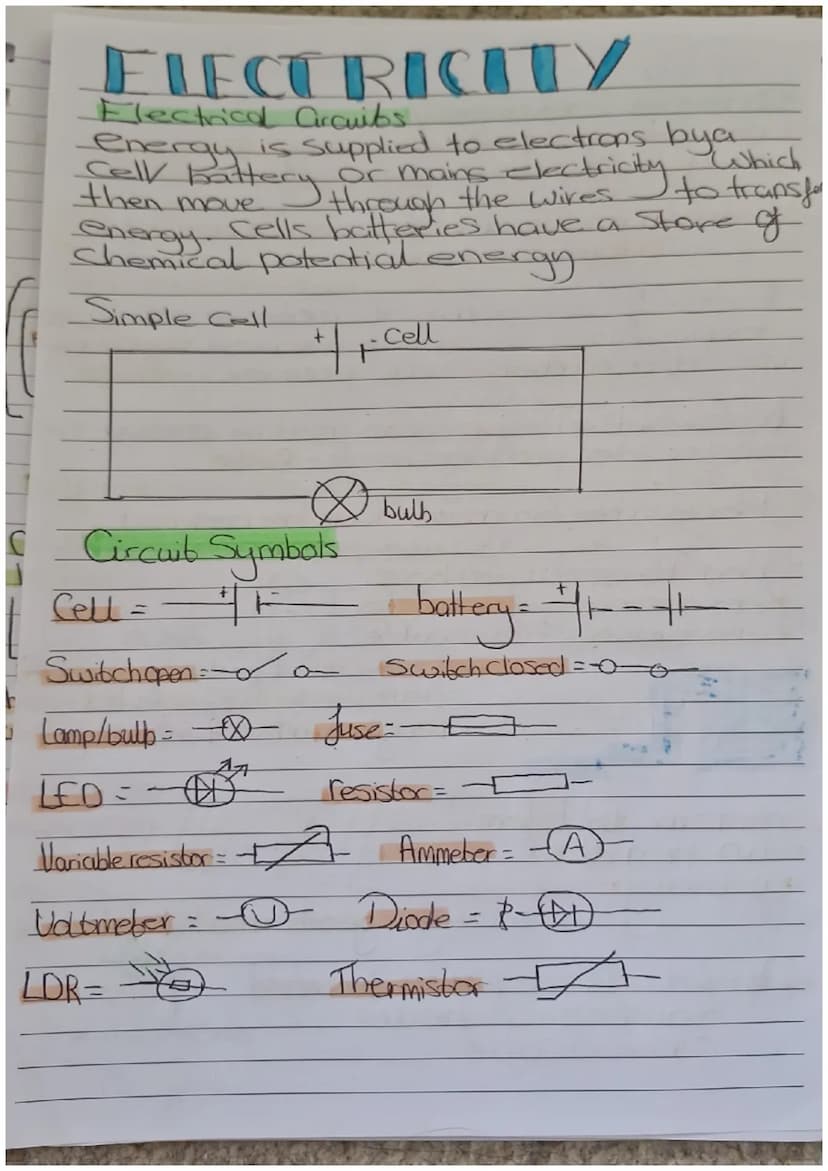 ELECTRICITY
Electrical Circuits
energy is supplied to electrons by a
cell/ battery or mains electricity which
then move through the wires to transfer
energy. Cells batteries have a store of
chemical potential energy
Simple cell
+ - cell
bulb
Circuit Symbols
Cell = + - battery = +
Switch open = Switch closed =
Lamp/bulb = fuse =
LED = resistor =
Variable resistor = Ammeter = A
Voltmeter = V Diode =
LDR = Thermistor